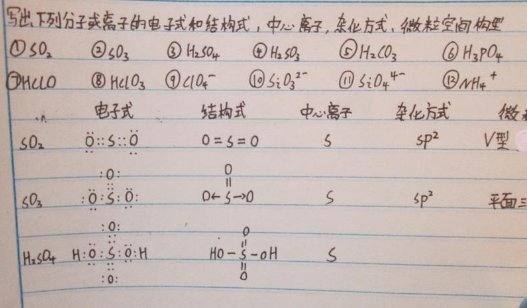 写出下列分子或离子的电子式和结构式,中心离子,杂化方式,微粒空间构型
①SO₂ ②SO₃ ③H₂SO₄ ④H₂SO₃ ⑤H₂CO₃ ⑥H₃PO₄
⑦HClO ⑧HClO₃ ⑨ClO₄⁻ ⑩SiO₃²⁻ ⑪SiO₄⁴⁻ ⑫NH₄⁺
电子式 结构式 中心离子 杂化方式 微
SO₂ Ö::S::Ö O=S=O S SP² V型
:O: O
SO₃ :Ö:S:Ö: O←S→O S SP² 平面三
:O: O
H₂SO₄ H:Ö:S:Ö:H HO-S-OH S
:O: O